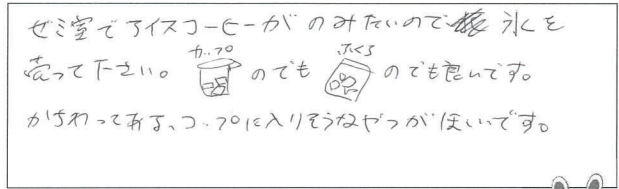 ゼミ室でアイスコーヒーがのみたいので氷を
売って下さい。カップのでもふくろのでも良いです。
かちわってある、コップに入りそうなやつがほしいです。